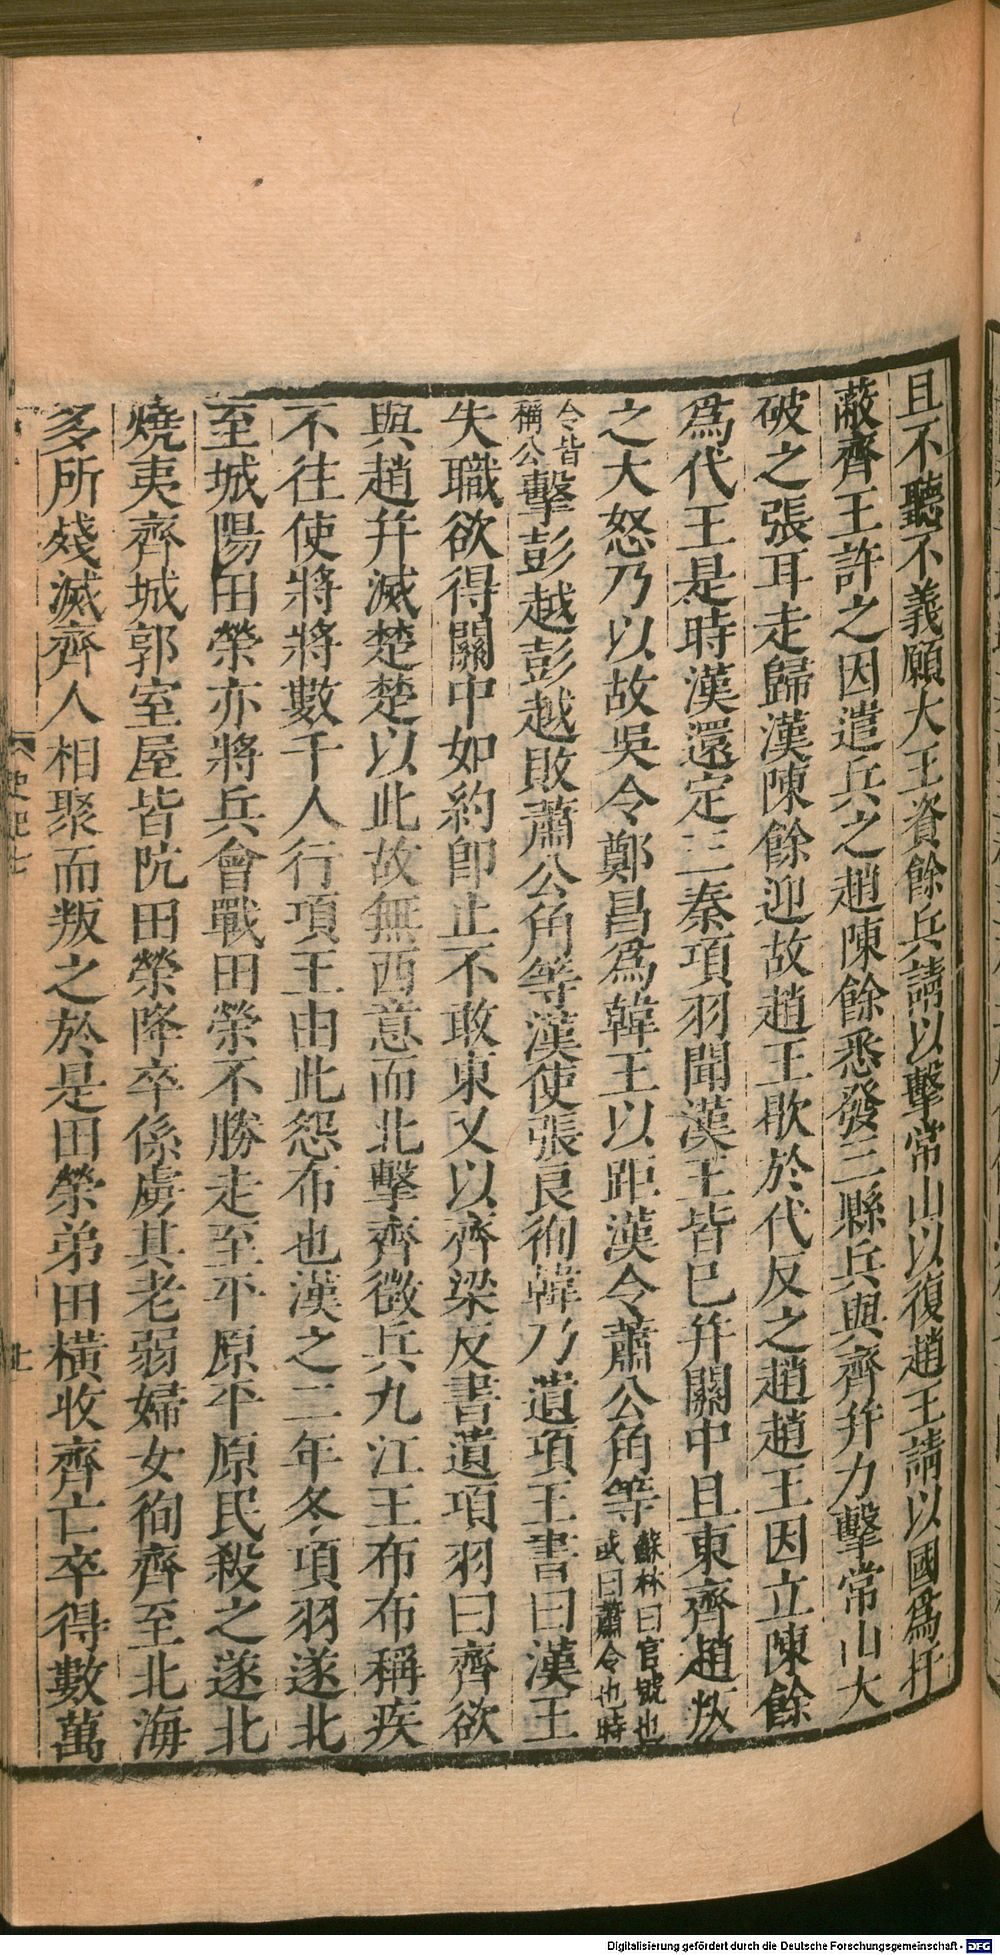 且不聽不義願大王資餘兵請以擊常山以復趙王請以國爲扞
蔽齊王許之因遣兵之趙陳餘悉發三縣兵與齊幷力擊常山大
破之張耳走歸漢陳餘迎故趙王歇於代反之趙趙王因立陳餘
爲代王是時漢還定三秦項羽聞漢王皆已幷關中且東齊趙叛
之大怒乃以故吳令鄭昌爲韓王以距漢令蕭公角等蘇林曰官號也或曰蕭令也時
令皆稱公擊彭越彭越敗蕭公角等漢使張良徇韓乃遺項王書曰漢王
失職欲得關中如約卽止不敢東又以齊梁反書遺項羽曰齊欲
與趙幷滅楚楚以此故無西意而北擊齊徵兵九江王布布稱疾
不往使將將數千人行項王由此怨布也漢之二年冬項羽遂北
至城陽田榮亦將兵會戰田榮不勝走至平原平原民殺之遂北
燒夷齊城郭室屋皆阬田榮降卒係虜其老弱婦女徇齊至北海
多所殘滅齊人相聚而叛之於是田榮弟田橫收齊亡卒得數萬
史記七
Digitalisierung gefördert durch die Deutsche Forschungsgemeinschaft - DFG